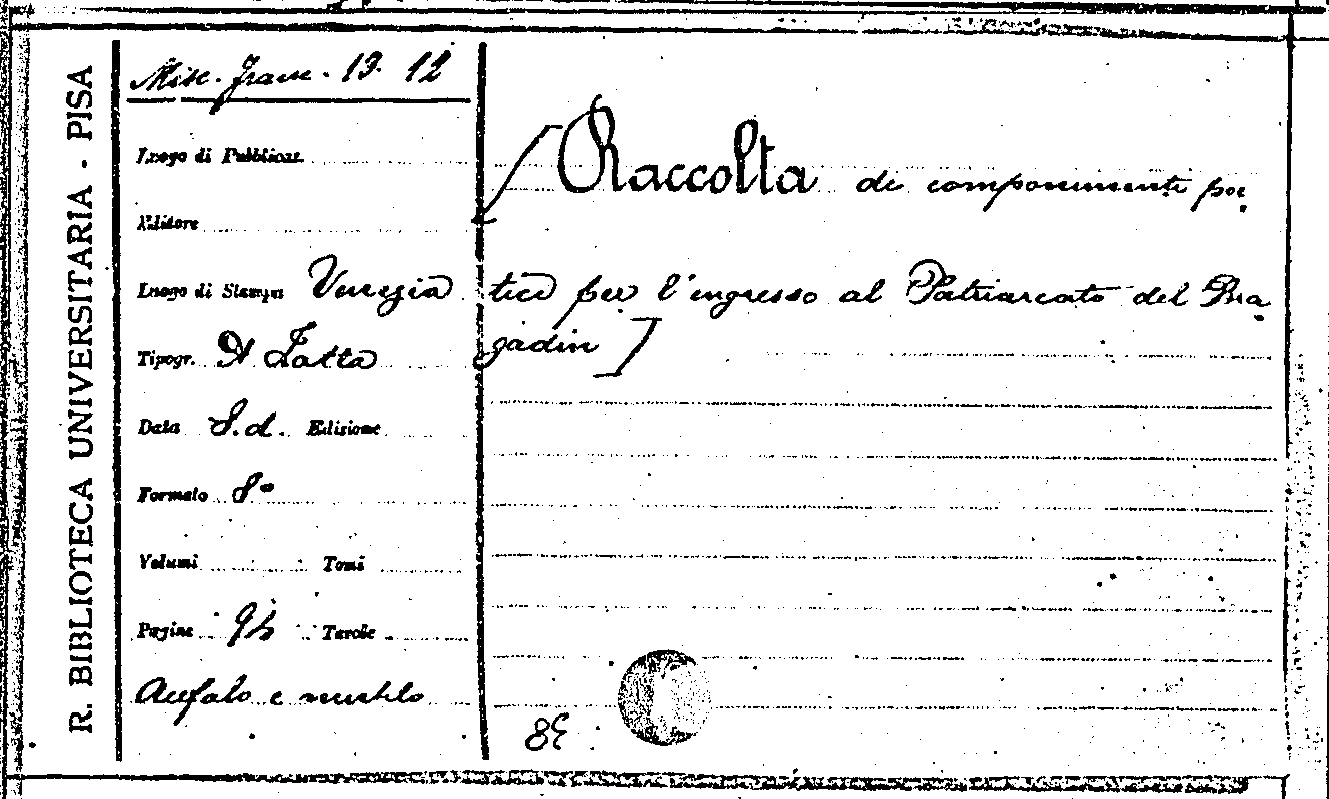 R. BIBLIOTECA UNIVERSITARIA - PISA
Misc. 13. 12
Luogo di Pubblicaz.
Editore
Luogo di Stampa Venezia
Tipogr. A Zatta
Data S.d. Edizione
Formato 8º
Volumi Tomi
Pagine 95 Tavole
Acefalo e mutilo
[Raccolta di componimenti poe
tici per l'ingresso al Patriarcato del Bra
gadin]